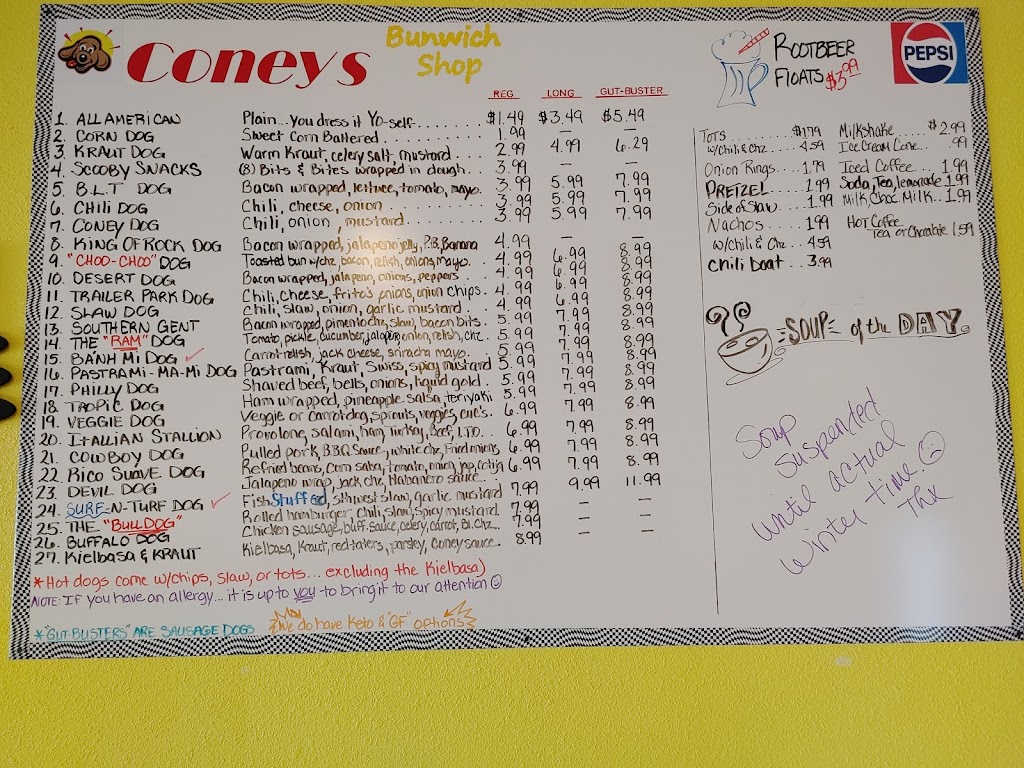 Coneys
Bunwich
Shop
REG LONG GUT-BUSTER
1. ALL AMERICAN Plain...you dress it Yo-self........ $1.49 $3.49 $5.49
2. CORN DOG Sweet Corn Battered........ 1.99 — —
3. KRAUT DOG Warm Kraut, celery salt, mustard..... 2.99 4.99 6.29
4. SCOOBY SNACKS (8) Bits & Bites wrapped in dough... 3.99 — —
5. B.L.T DOG Bacon wrapped, lettuce, tomato, mayo. 3.99 5.99 7.99
6. CHILI DOG Chili, cheese, onion........ 3.99 5.99 7.99
7. CONEY DOG Chili, onion, mustard....... 3.99 5.99 7.99
8. KING OF ROCK DOG Bacon wrapped, jalapeno jelly, P.B, Banana 4.99 — —
9. "CHOO-CHOO" DOG Toasted bun w/chz, bacon, relish, onions, mayo. 4.99 6.99 8.99
10. DESERT DOG Bacon wrapped, jalapeno, onions, peppers. 4.99 6.99 8.99
11. TRAILER PARK DOG Chili, cheese, frito's, onions, onion chips. 4.99 6.99 8.99
12. SLAW DOG Chili, slaw, onion, garlic mustard.. 4.99 6.99 8.99
13. SOUTHERN GENT Bacon wrapped, pimento chz, slaw, bacon bits. 5.99 7.99 8.99
14. THE "RAM" DOG Tomato, pickle, cucumber, jalapeno, onion, relish, chz. 5.99 7.99 8.99
15. BANH MI DOG Carrot relish, jack cheese, sriracha mayo. 5.99 7.99 8.99
16. PASTRAMI-MA-MI DOG Pastrami, Kraut, Swiss, spicy mustard 5.99 7.99 8.99
17. PHILLY DOG Shaved beef, bells, onions, liquid gold. 5.99 7.99 8.99
18. TROPIC DOG Ham wrapped, pineapple salsa, teriyaki 5.99 7.99 8.99
19. VEGGIE DOG Veggie or carrot dog, sprouts, veggies, cuc's. 6.99 7.99 8.99
20. ITALLIAN STALLION Provolong, salami, ham, turkey, Beef, L.T.O.. 6.99 7.99 8.99
21. COWBOY DOG Pulled pork, B.B.Q Sauce, white chz, Fried onions 6.99 7.99 8.99
22. RICO SUAVE DOG Refried beans, Corn salsa, tomato, onion, jap, cotija 6.99 7.99 8.99
23. DEVIL DOG Jalapeno wrap, jack chz, Habanero sauce.. 6.99 7.99 8.99
24. SURF-N-TURF DOG Fish Stuffed, sthwest slaw, garlic mustard 7.99 9.99 11.99
25. THE "BULLDOG" Rolled hamburger, chili, slaw, spicy mustard 7.99 — —
26. BUFFALO DOG Chicken sausage, buff. sauce, celery, carrot, Bl. Chz.. 7.99 — —
27. Kielbasa & KRAUT Kielbasa, Kraut, red taters, parsley, Coney sauce.. 8.99 — —
*Hot dogs come w/chips, slaw, or tots... excluding the Kielbasa)
NOTE: IF you have an allergy... it is up to you to bring it to our attention
*"GUT-BUSTERS" ARE SAUSAGE DOGS
We do have Keto & "GF" options
ROOTBEER
FLOATS $3.99
PEPSI
TOTS......... $1.79
w/Chili & Chz.... 4.59
Onion Rings.... 1.79
PRETZEL..... 1.99
Side of Slaw.... 1.99
Nachos... 1.99
w/chili & Chz... 4.59
Chili boat... 3.99
Milkshake..... $2.99
Ice Cream Cone... .99
Iced Coffee.... 1.99
Soda, Tea, lemonade 1.99
Milk, Choc. Milk.. 1.99
Hot Coffee
Tea or Chocolate 1.59
SOUP of the DAY.
Soup
Suspended
until actual
winter time.
Thx